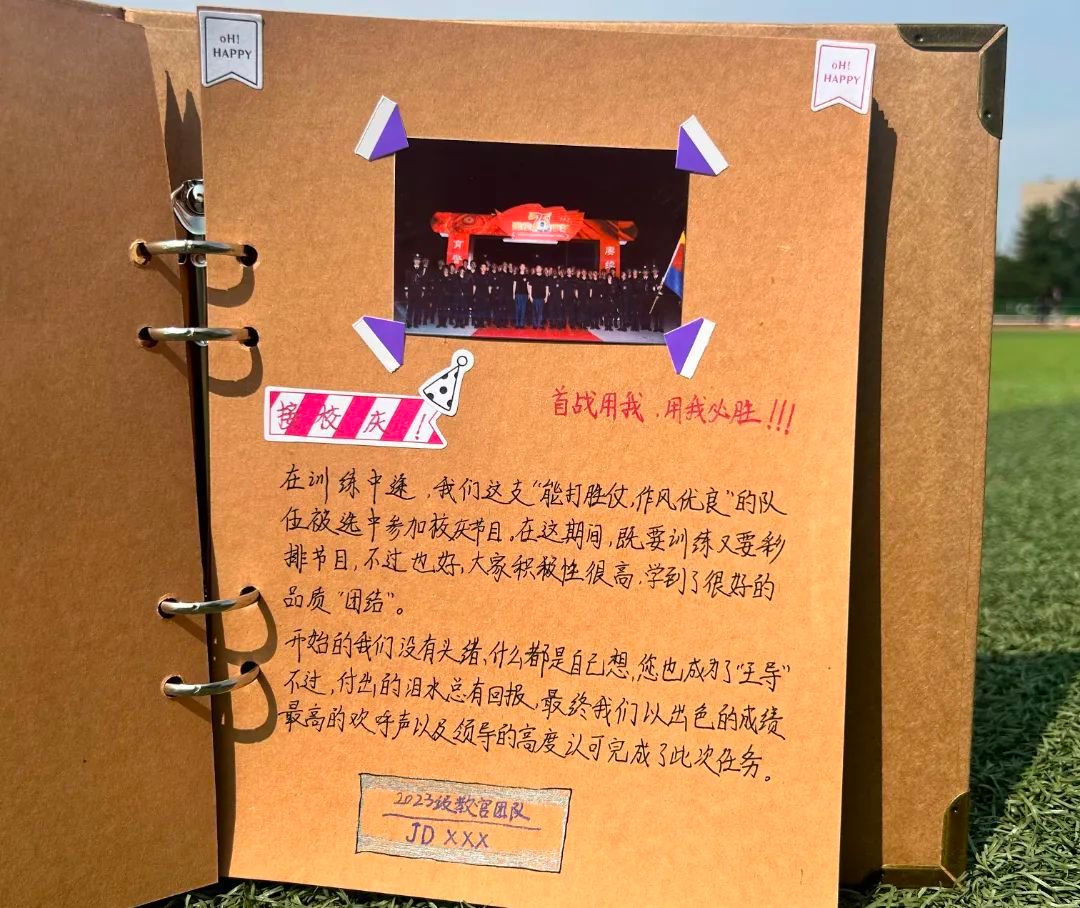 oH!
HAPPY
oH!
HAPPY
育警
接校庆!
首战用我,用我必胜!!!
在训练中途,我们这支“能打胜仗,作风优良”的队
伍被选中参加校庆节目。在这期间,既要训练又要彩
排节目,不过也好,大家积极性很高,学到了很好的
品质“团结”。
开始的我们没有头绪,什么都是自己想,您也成为了“王导”
不过,付出的泪水总有回报,最终我们以出色的成绩
最高的欢呼声以及领导的高度认可完成了此次任务。
2023级教官团队
JD XXX